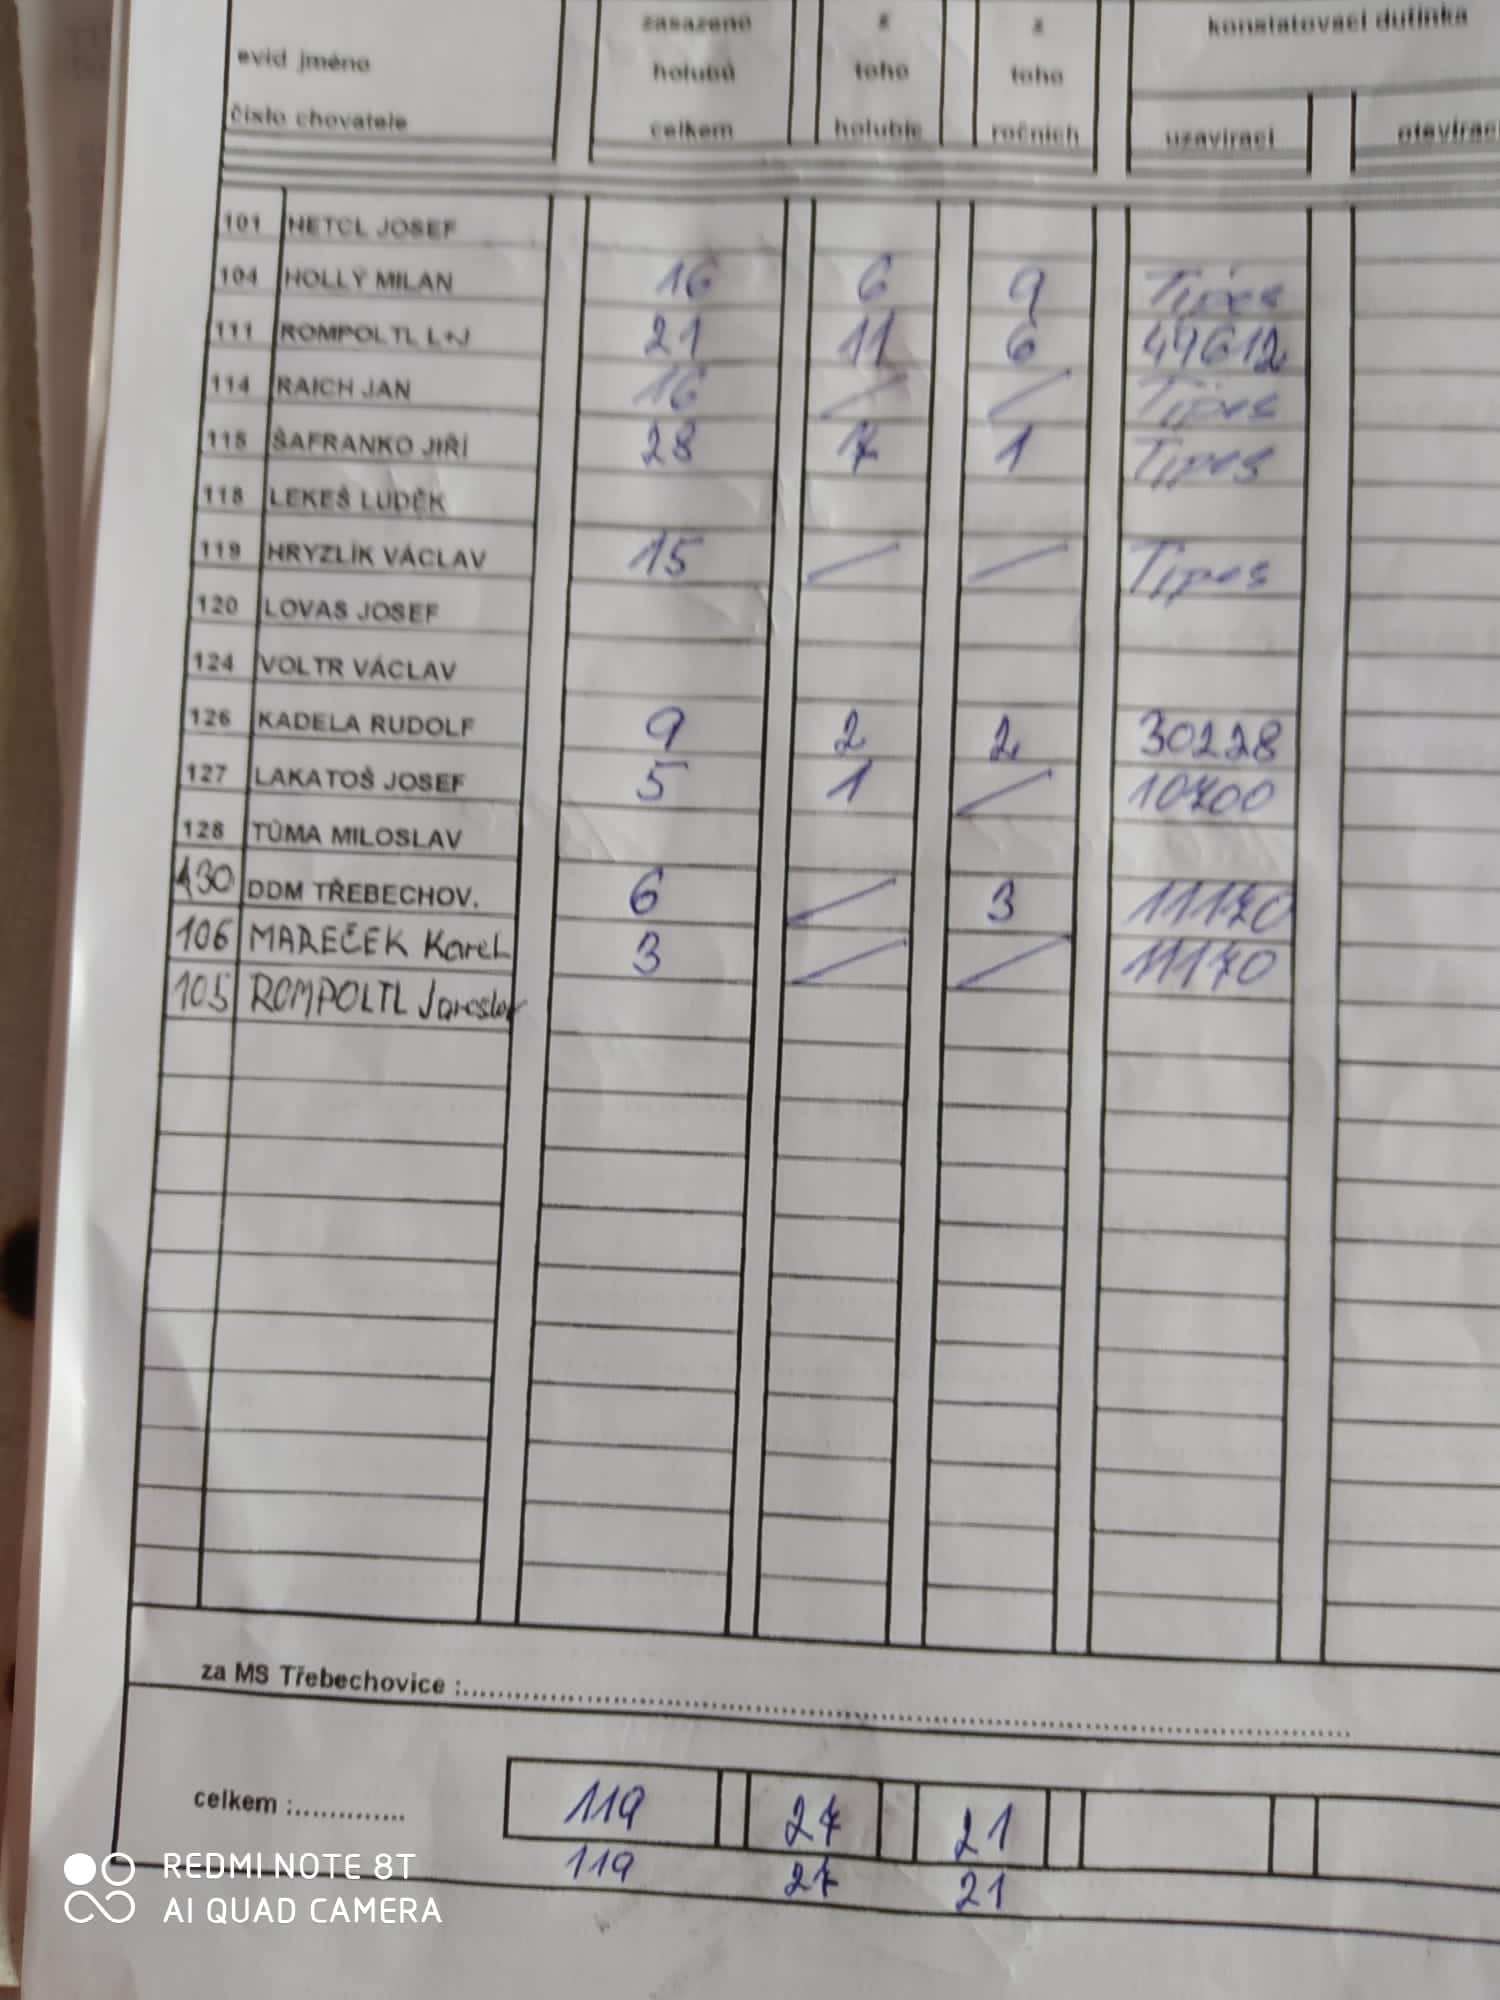 zasazeno z z konstatovací dutinka
evid jméno holubů toho toho
číslo chovatele celkem holubic ročních uzavírací otevírací
101 HETCL JOSEF
104 HOLLÝ MILAN 16 6 9 Tipes
111 ROMPOLTL L+J 21 11 6 49612
114 RAICH JAN 16 / / Tipes
115 ŠAFRANKO JIŘÍ 28 7 1 Tipes
118 LEKEŠ LUDĚK
119 HRYZLÍK VÁCLAV 15 / / Tipes
120 LOVAS JOSEF
124 VOLTR VÁCLAV
126 KADELA RUDOLF 9 2 2 30228
127 LAKATOŠ JOSEF 5 1 / 10700
128 TŮMA MILOSLAV
130 DDM TŘEBECHOV. 6 / 3 11170
106 MAREČEK Karel 3 / / 11170
105 ROMPOLTL Jaroslav
za MS Třebechovice :..........
celkem :............. 119 27 21
119 27 21
REDMI NOTE 8T
AI QUAD CAMERA